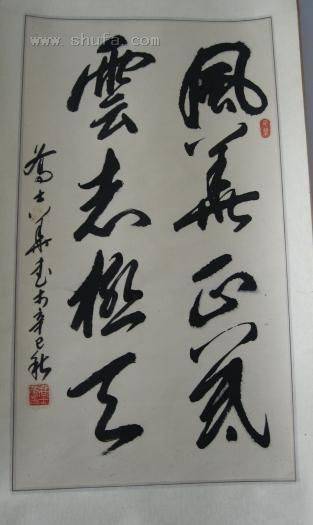 www.shufa.com
風華正茂
雲志極天
士華書於辛巳秋